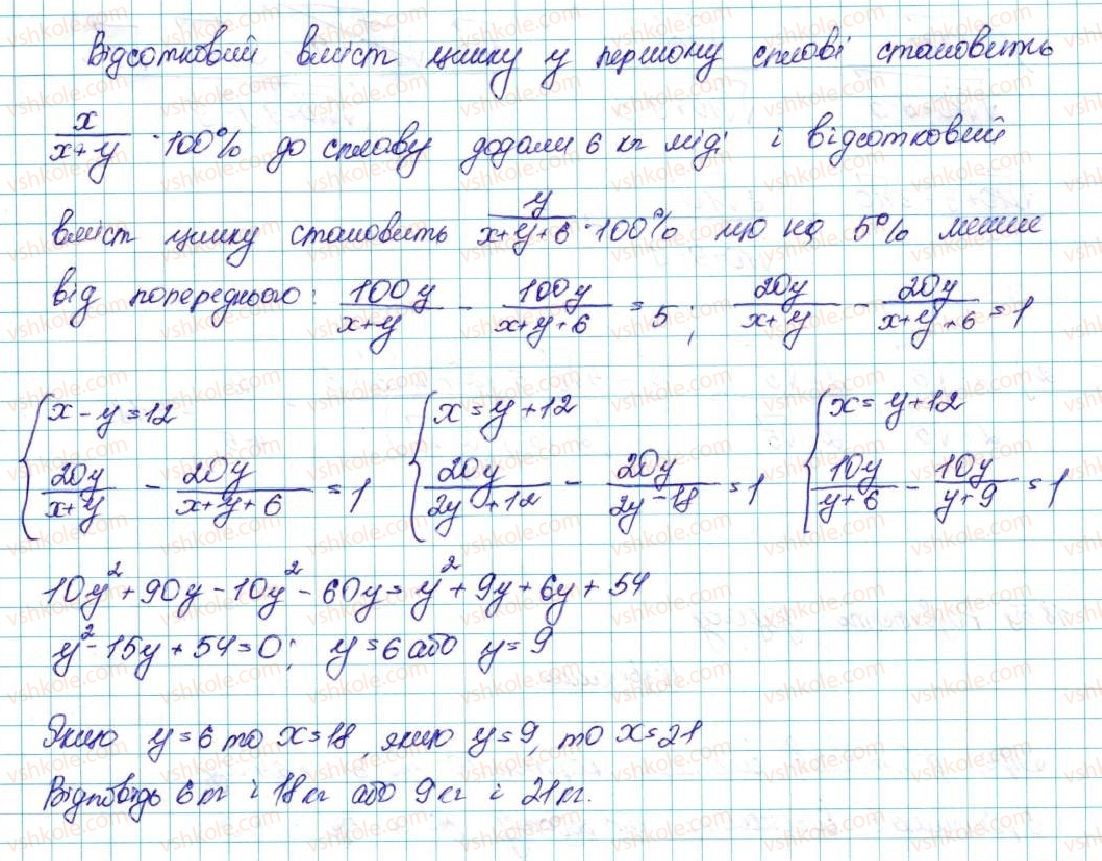 Відсотковий вміст цинку у першому сплаві становить
x/(x+y) · 100% до сплаву додали 6 кг міді і відсотковий
вміст цинку становить y/(x+y+6) · 100% що на 5% менше
від попереднього: 100y/(x+y) - 100y/(x+y+6) = 5; 20y/(x+y) - 20y/(x+y+6) = 1
{ x - y = 12 { x = y + 12 { x = y + 12
20y/(x+y) - 20y/(x+y+6) = 1 20y/(2y+12) - 20y/(2y-18) = 1 10y/(y+6) - 10y/(y+9) = 1
10y² + 90y - 10y² - 60y = y² + 9y + 6y + 54
y² - 15y + 54 = 0; y = 6 або y = 9
Якщо y = 6 то x = 18, якщо y = 9, то x = 21
Відповідь 6 кг і 18 кг або 9 кг і 21 кг.
vshkole.com